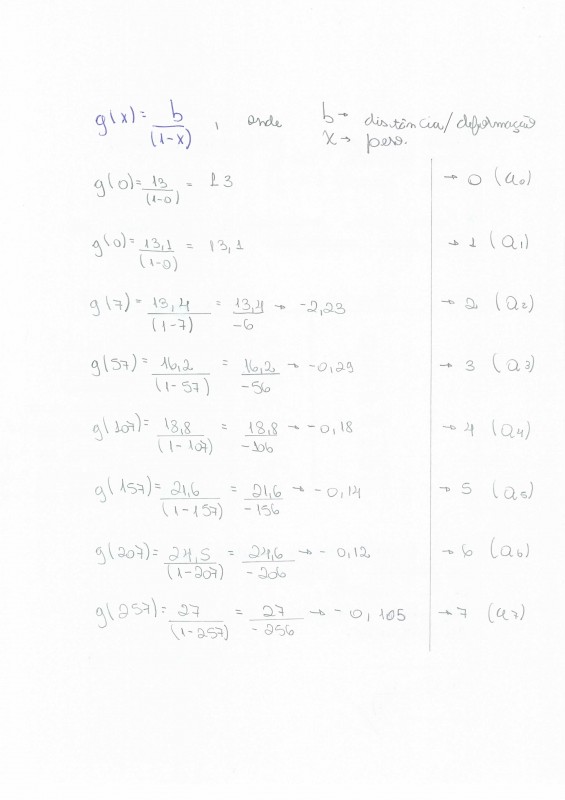 g(x) = b/(1-x) , onde b → distância/deformação
x → peso.
g(0) = 13/(1-0) = 13 → 0 (a0)
g(0) = 13,1/(1-0) = 13,1 → 1 (a1)
g(7) = 13,4/(1-7) = 13,4/-6 → -2,23 → 2 (a2)
g(57) = 16,2/(1-57) = 16,2/-56 → -0,29 → 3 (a3)
g(107) = 18,8/(1-107) = 18,8/-106 → -0,18 → 4 (a4)
g(157) = 21,6/(1-157) = 21,6/-156 → -0,14 → 5 (a5)
g(207) = 24,5/(1-207) = 24,6/-206 → -0,12 → 6 (a6)
g(257) = 27/(1-257) = 27/-256 → -0,105 → 7 (a7)